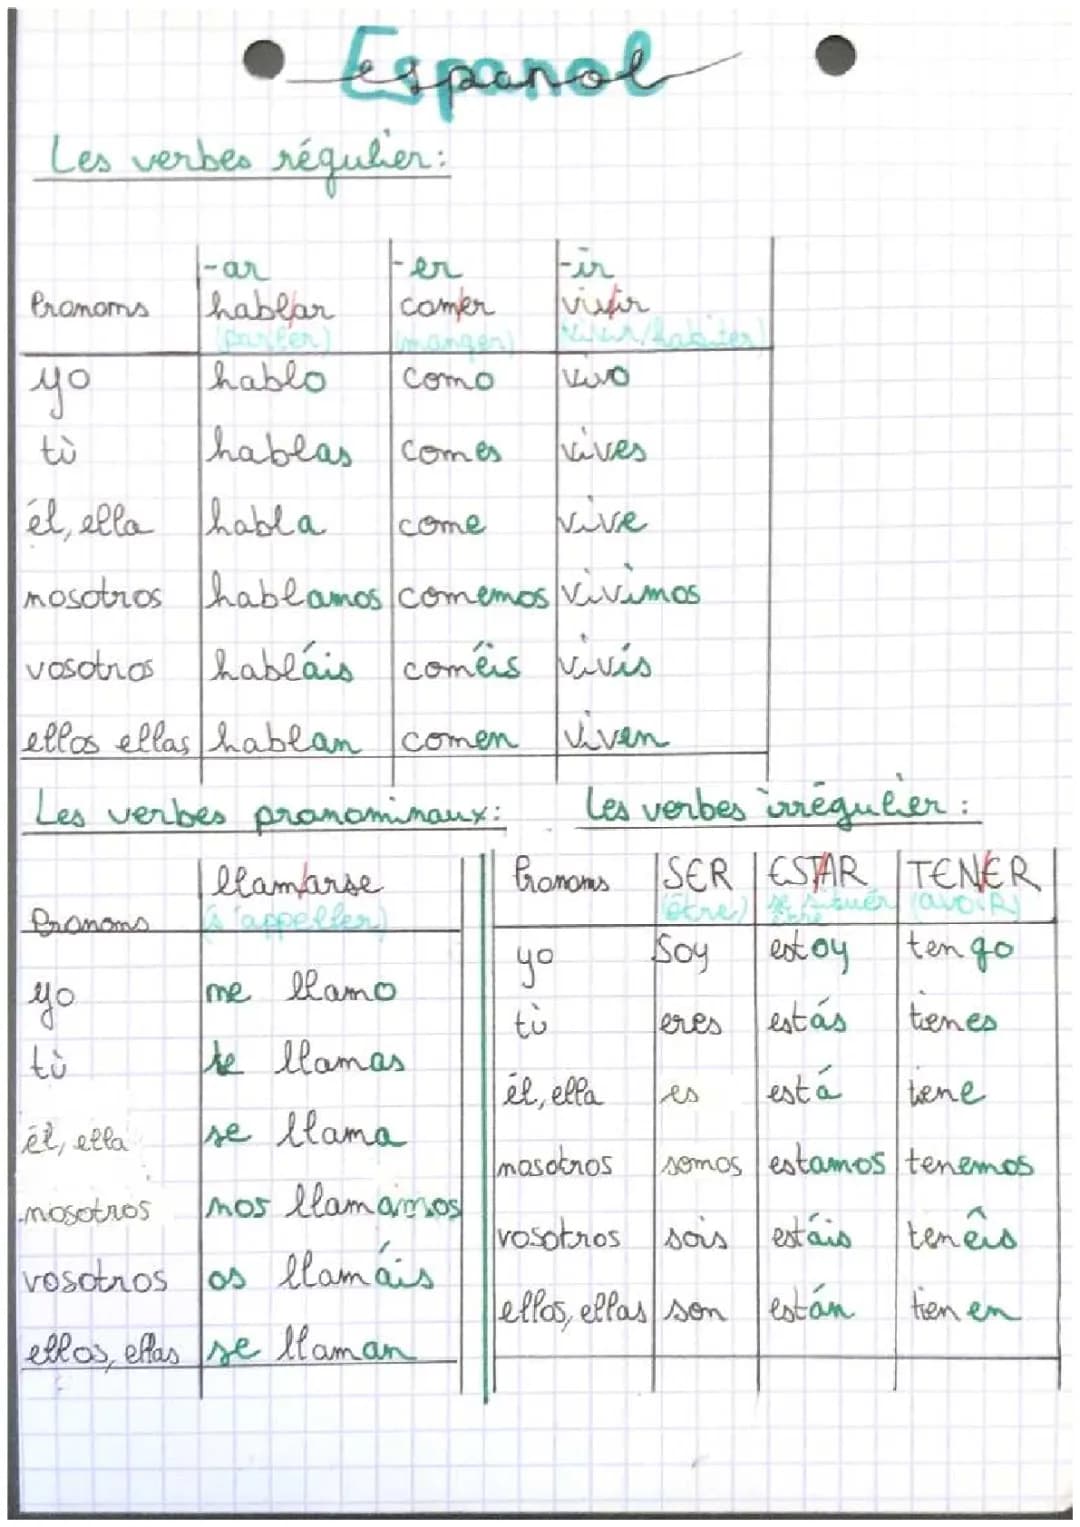 Espanol
espanol
Les verbes régulier:
-ar -er -ir
Pronoms hablar comer vivir
(parler) (manger) (vivir/habiter)
yo hablo como vivo
tù hablas comes vives
él, ella habla come vive
nosotros hablamos comemos vivimos
vosotros habláis coméis vivís
ellos ellas hablan comen viven
Les verbes pronominaux:
llamarse
Pronoms (s'appeller)
yo me llamo
tù te llamas
él, ella se llama
nosotros nos llamamos
vosotros os llamáis
ellos, ellas se llaman
Les verbes irrégulier:
Pronoms SER ESTAR TENER
(être) se situer (avoiR)
être
yo soy estoy tengo
tù eres estás tienes
él, ella es está tiene
nosotros somos estamos tenemos
vosotros sois estáis tenêis
ellos, ellas son están tienen